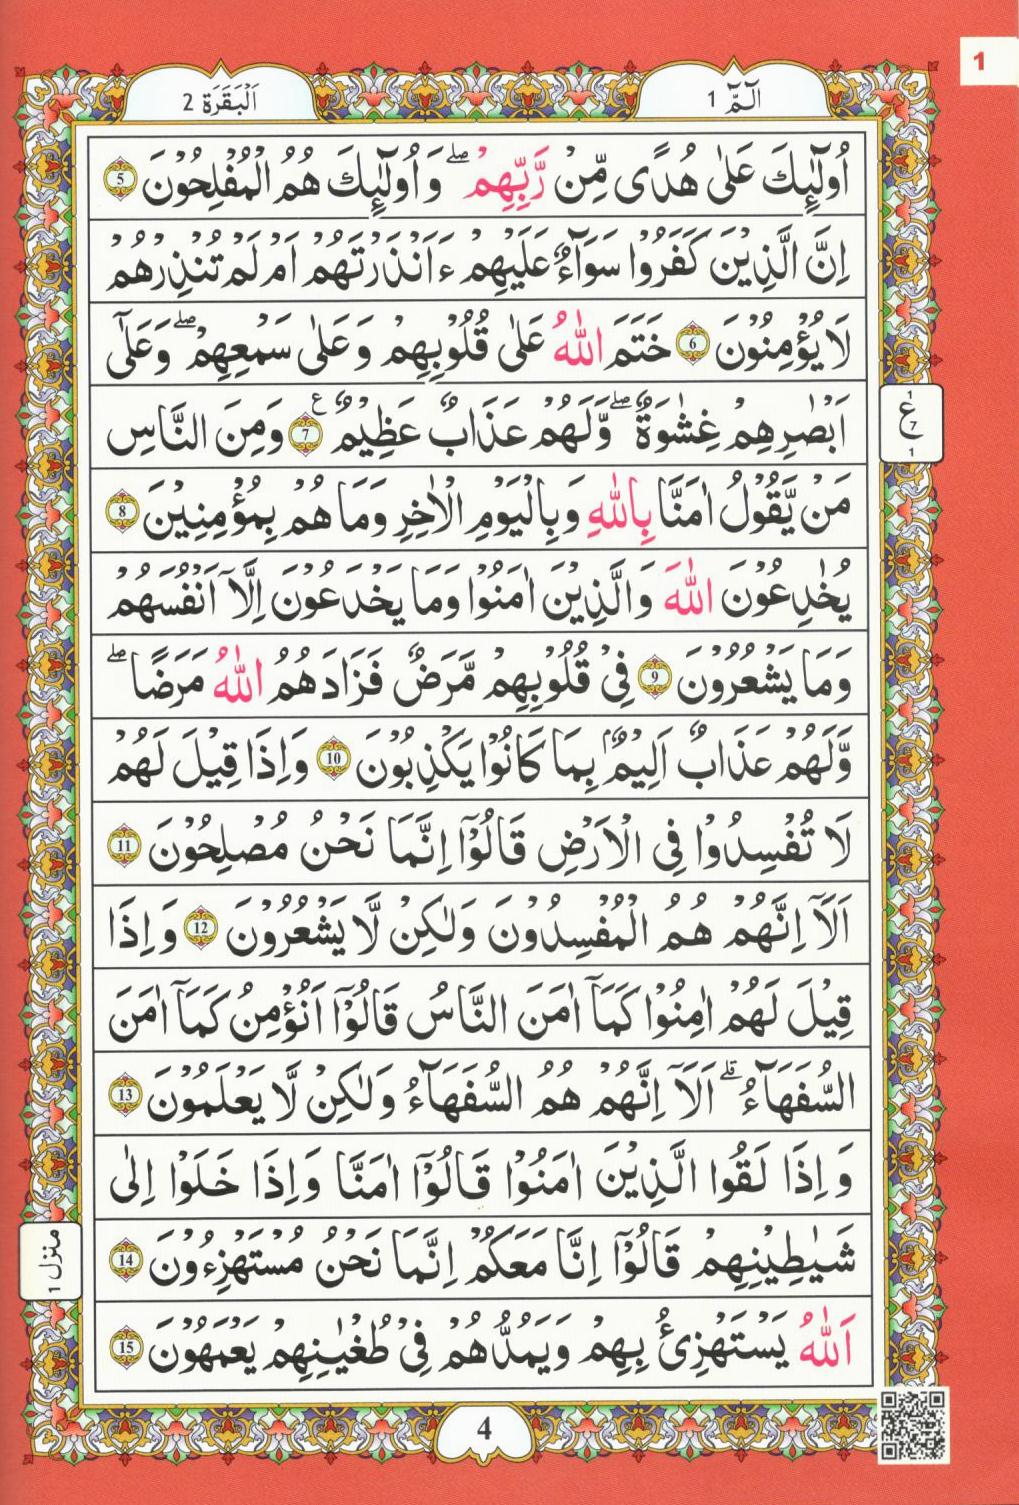 1
اَلْبَقَرَة 2
الٓمّٓ 1
اُولٰٓئِكَ عَلٰى هُدًى مِّنْ رَّبِّهِمْ ۖ وَاُولٰٓئِكَ هُمُ الْمُفْلِحُوْنَ 5
اِنَّ الَّذِيْنَ كَفَرُوْا سَوَآءٌ عَلَيْهِمْ ءَاَنْذَرْتَهُمْ اَمْ لَمْ تُنْذِرْهُمْ
لَا يُؤْمِنُوْنَ 6 خَتَمَ اللّٰهُ عَلٰى قُلُوْبِهِمْ وَعَلٰى سَمْعِهِمْ ۖ وَعَلٰٓى
اَبْصٰرِهِمْ غِشٰوَةٌ ۖ وَّلَهُمْ عَذَابٌ عَظِيْمٌ ع 7 وَمِنَ النَّاسِ
1
ع
7
1
مَنْ يَّقُوْلُ اٰمَنَّا بِاللّٰهِ وَبِالْيَوْمِ الْاٰخِرِ وَمَا هُمْ بِمُؤْمِنِيْنَ 8
يُخٰدِعُوْنَ اللّٰهَ وَالَّذِيْنَ اٰمَنُوْا وَمَا يَخْدَعُوْنَ اِلَّآ اَنْفُسَهُمْ
وَمَا يَشْعُرُوْنَ 9 فِىْ قُلُوْبِهِمْ مَّرَضٌ فَزَادَهُمُ اللّٰهُ مَرَضًا ۖ
وَّلَهُمْ عَذَابٌ اَلِيْمٌۢ بِمَا كَانُوْا يَكْذِبُوْنَ 10 وَاِذَا قِيْلَ لَهُمْ
لَا تُفْسِدُوْا فِى الْاَرْضِ قَالُوْٓا اِنَّمَا نَحْنُ مُصْلِحُوْنَ 11
اَلَآ اِنَّهُمْ هُمُ الْمُفْسِدُوْنَ وَلٰكِنْ لَّا يَشْعُرُوْنَ 12 وَاِذَا
قِيْلَ لَهُمْ اٰمِنُوْا كَمَآ اٰمَنَ النَّاسُ قَالُوْٓا اَنُؤْمِنُ كَمَآ اٰمَنَ
السُّفَهَآءُ ۗ اَلَآ اِنَّهُمْ هُمُ السُّفَهَآءُ وَلٰكِنْ لَّا يَعْلَمُوْنَ 13
وَاِذَا لَقُوا الَّذِيْنَ اٰمَنُوْا قَالُوْٓا اٰمَنَّا وَاِذَا خَلَوْا اِلٰى
شَيٰطِيْنِهِمْ قَالُوْٓا اِنَّا مَعَكُمْ اِنَّمَا نَحْنُ مُسْتَهْزِءُوْنَ 14
منزل 1
اَللّٰهُ يَسْتَهْزِئُ بِهِمْ وَيَمُدُّهُمْ فِىْ طُغْيٰنِهِمْ يَعْمَهُوْنَ 15
4